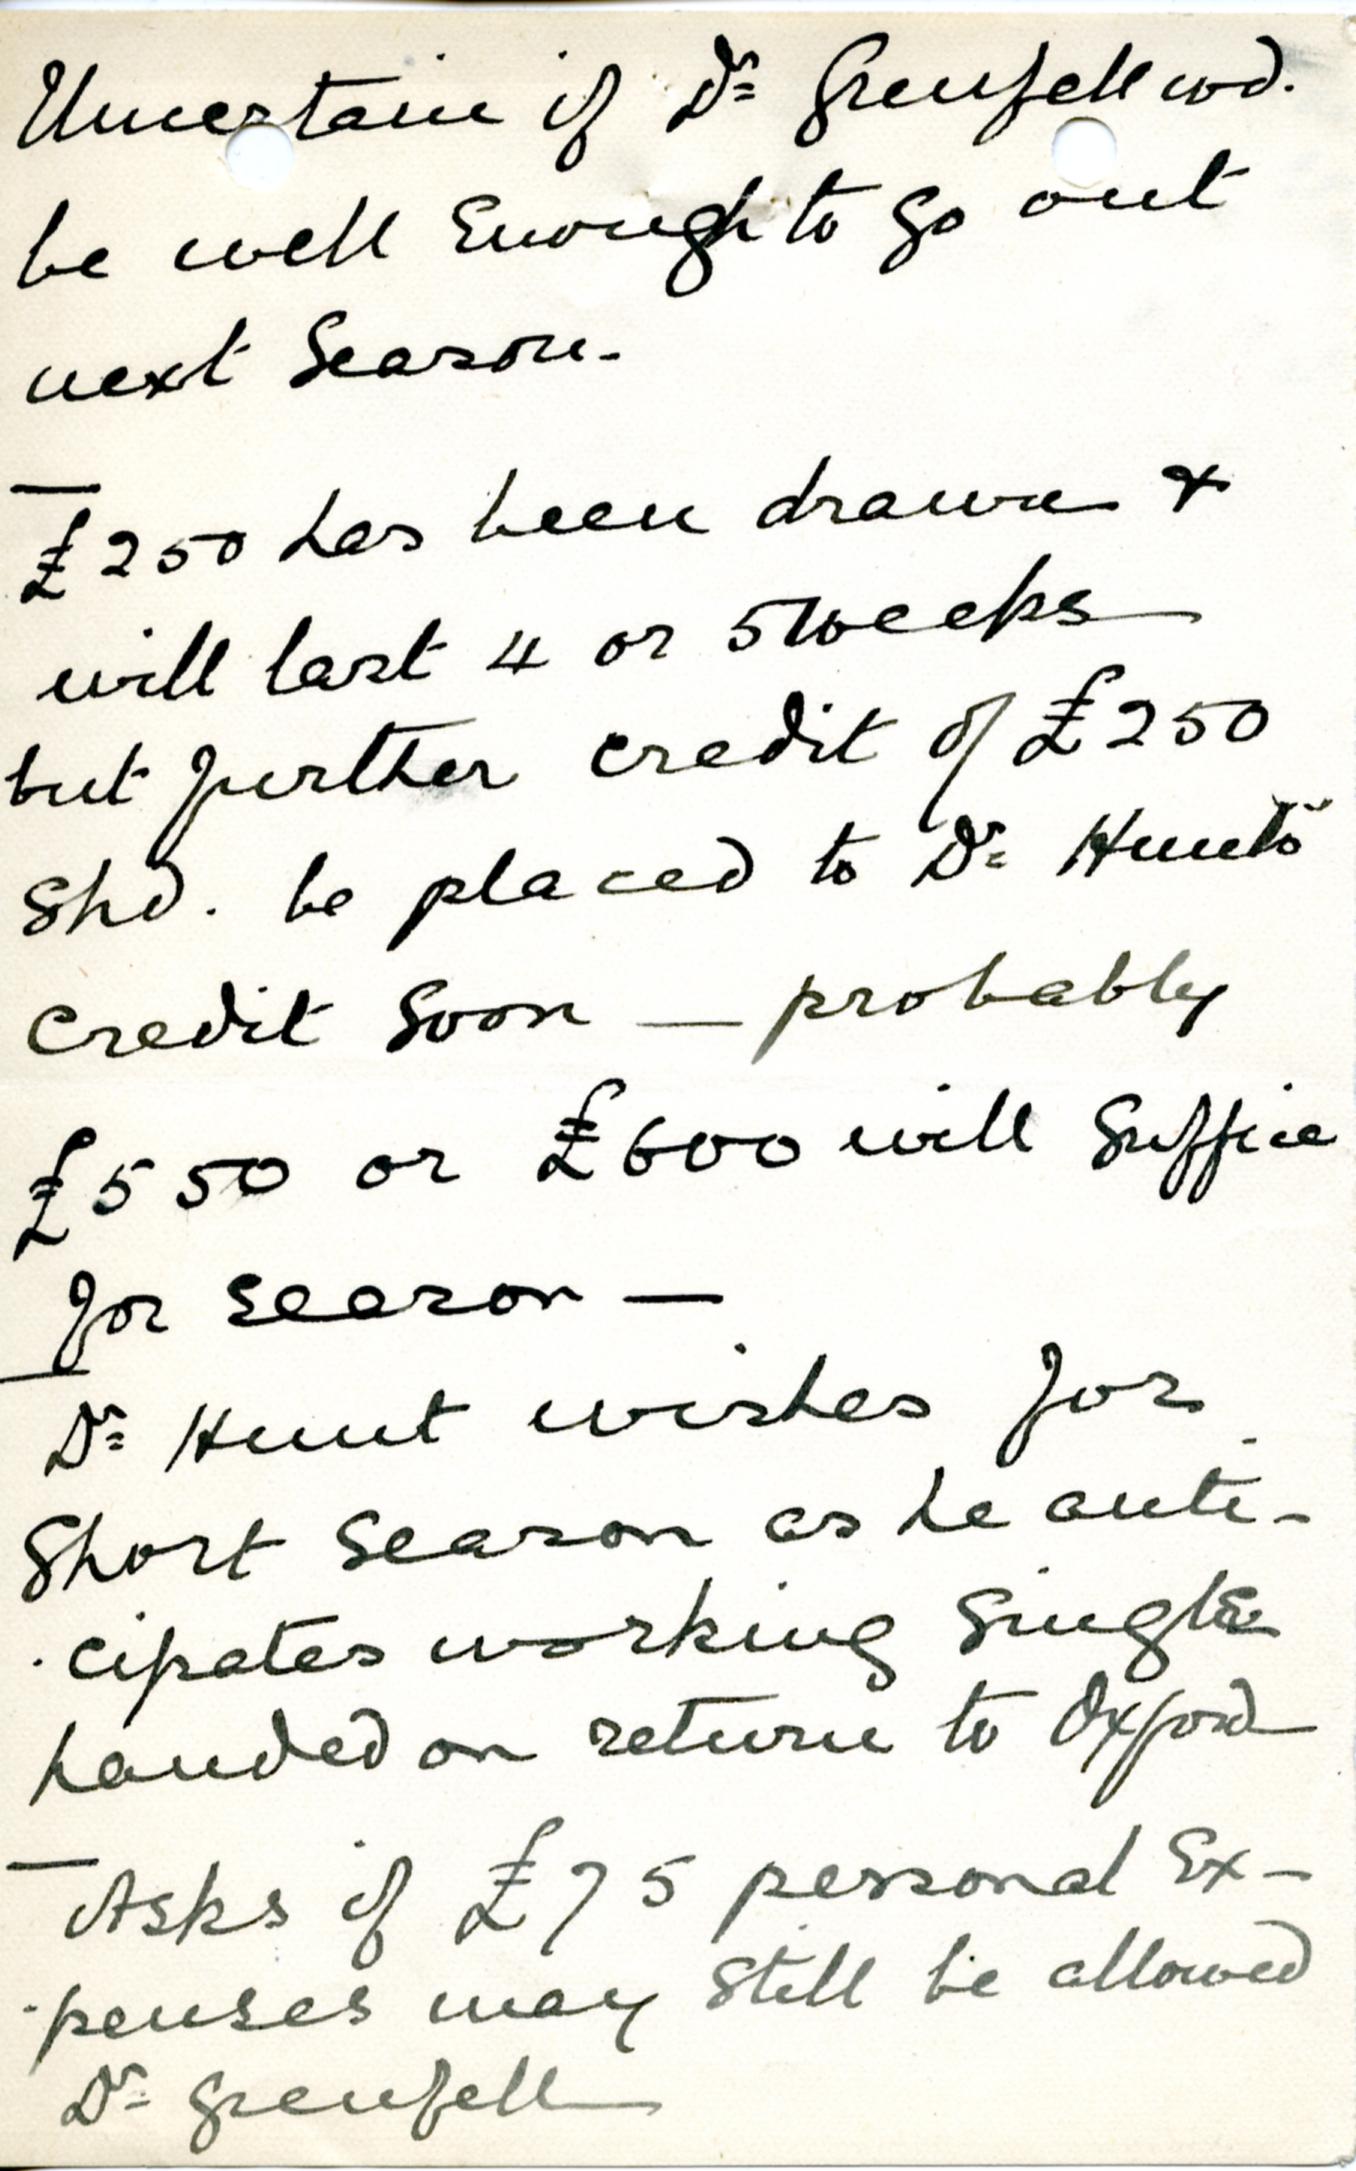 Uncertain if Dr Grenfell wd.
be well Enough to go out
next Season.
£250 has been drawn &
will last 4 or 5 weeks
but further credit of £250
Shd. be placed to Dr Hunt's
Credit Soon — probably
£550 or £600 will Suffice
for Season —
Dr Hunt wishes for
Short Season as he anti-
cipates working Single
handed on return to Oxford
Asks if £75 personal Ex-
penses may Still be allowed
Dr Grenfell